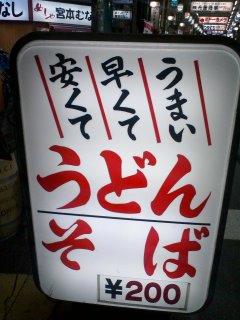 うまい
早くて
安くて
うどん
そば
¥200
宮本むなし